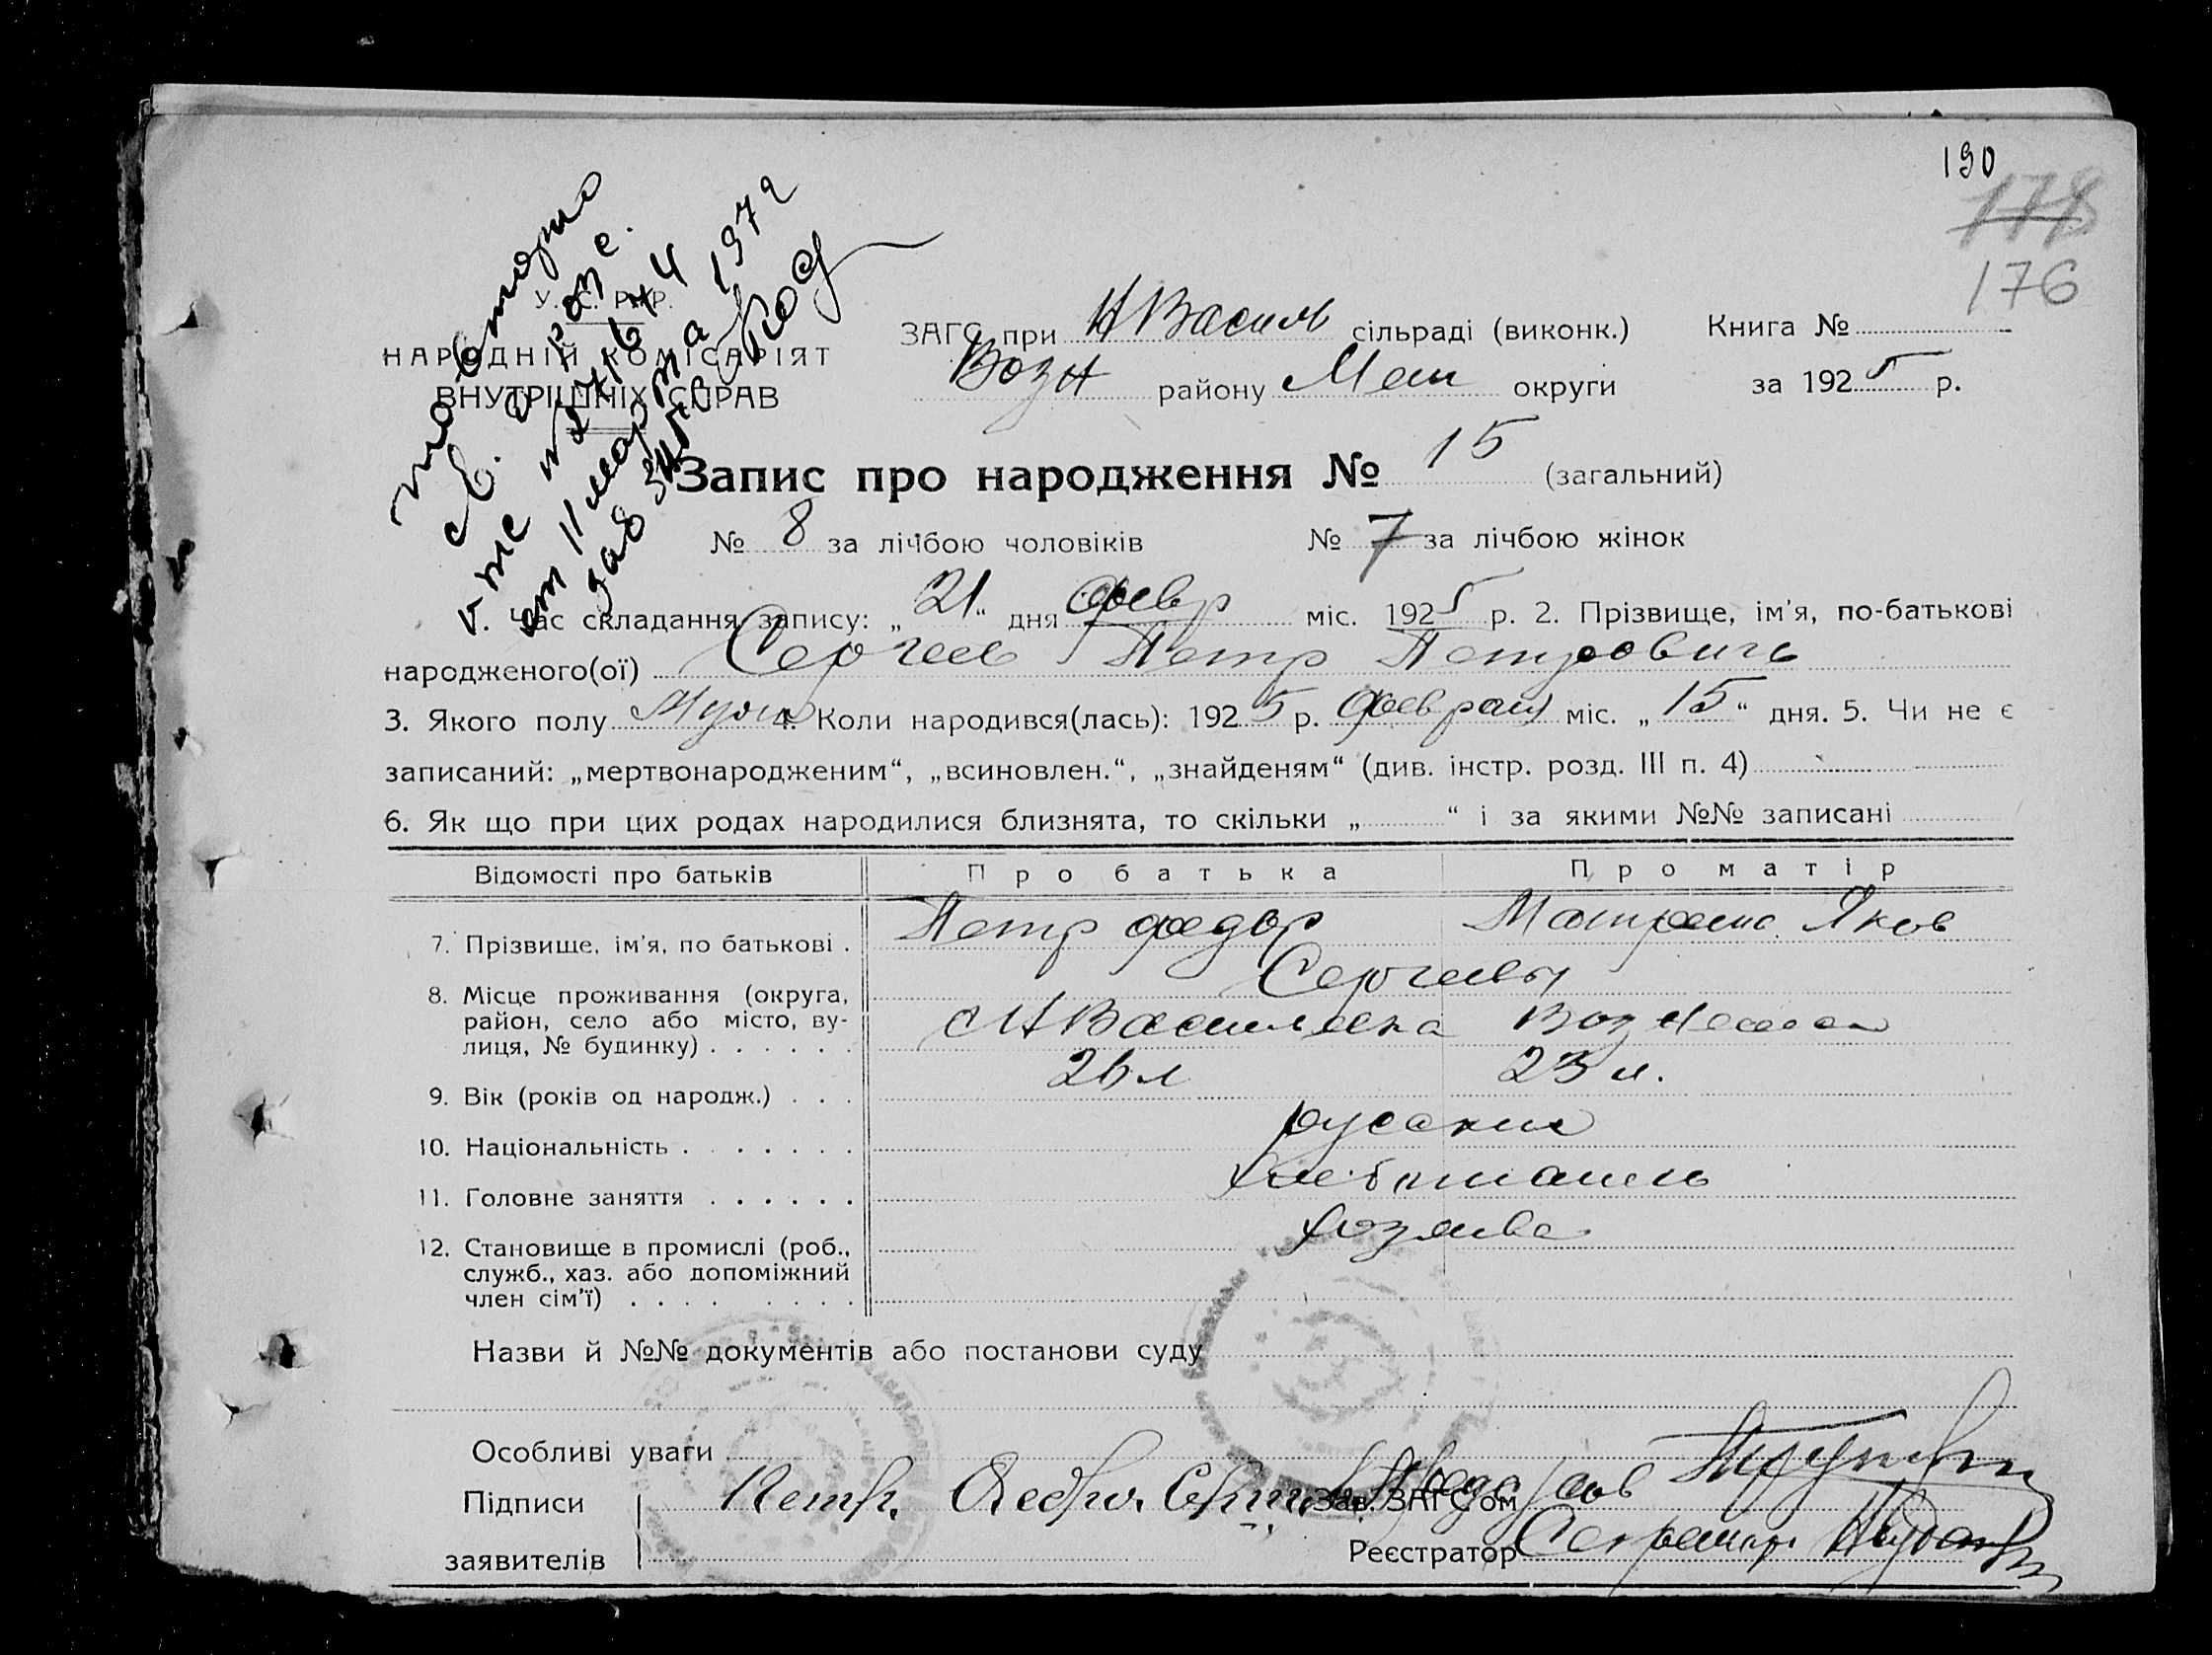 190
178
176
У. С. Р. Р.
НАРОДНІЙ КОМІСАРІЯТ
ВНУТРІШНІХ СПРАВ
повторно
от 11 марта 1972
ЗАГС при Н Василь сільраді (виконк.) Книга №
Возн району Мел округи за 1925 р.
Запис про народження № 15 (загальний)
№ 8 за лічбою чоловіків № 7 за лічбою жінок
1. Час складання запису: „21“ дня февр міс. 1925 р. 2. Прізвище, ім'я, по-батькові
народженого(ої) Сергеев Петр Петрович
3. Якого полу Муж 4. Коли народився(лась): 1925 р. февраля міс. „15“ дня. 5. Чи не є
записаний: „мертвонародженим“, „всиновлен.“, „знайденям“ (див. інстр. розд. III п. 4)
6. Як що при цих родах народилися близнята, то скільки „ “ і за якими №№ записані
Відомості про батьків Про батька Про матір
7. Прізвище, ім'я, по батькові . Петр Федор Матрена Яков
Сергеевы
8. Місце проживання (округа,
район, село або місто, ву-
лиця, № будинку) . . . . . . Н Васильевка
9. Вік (років од народж.) . . . 26 л 23 л.
10. Національність . . . . . . . русские
11. Головне заняття . . . . . . хлебопашець
12. Становище в промислі (роб.,
служб., хаз. або допоміжний
член сім'ї) . . . . . . . .
Назви й №№ документів або постанови суду
Особливі уваги
Підписи Петр Зав. ЗАГС'ом
заявителів Реєстратор Секретарь